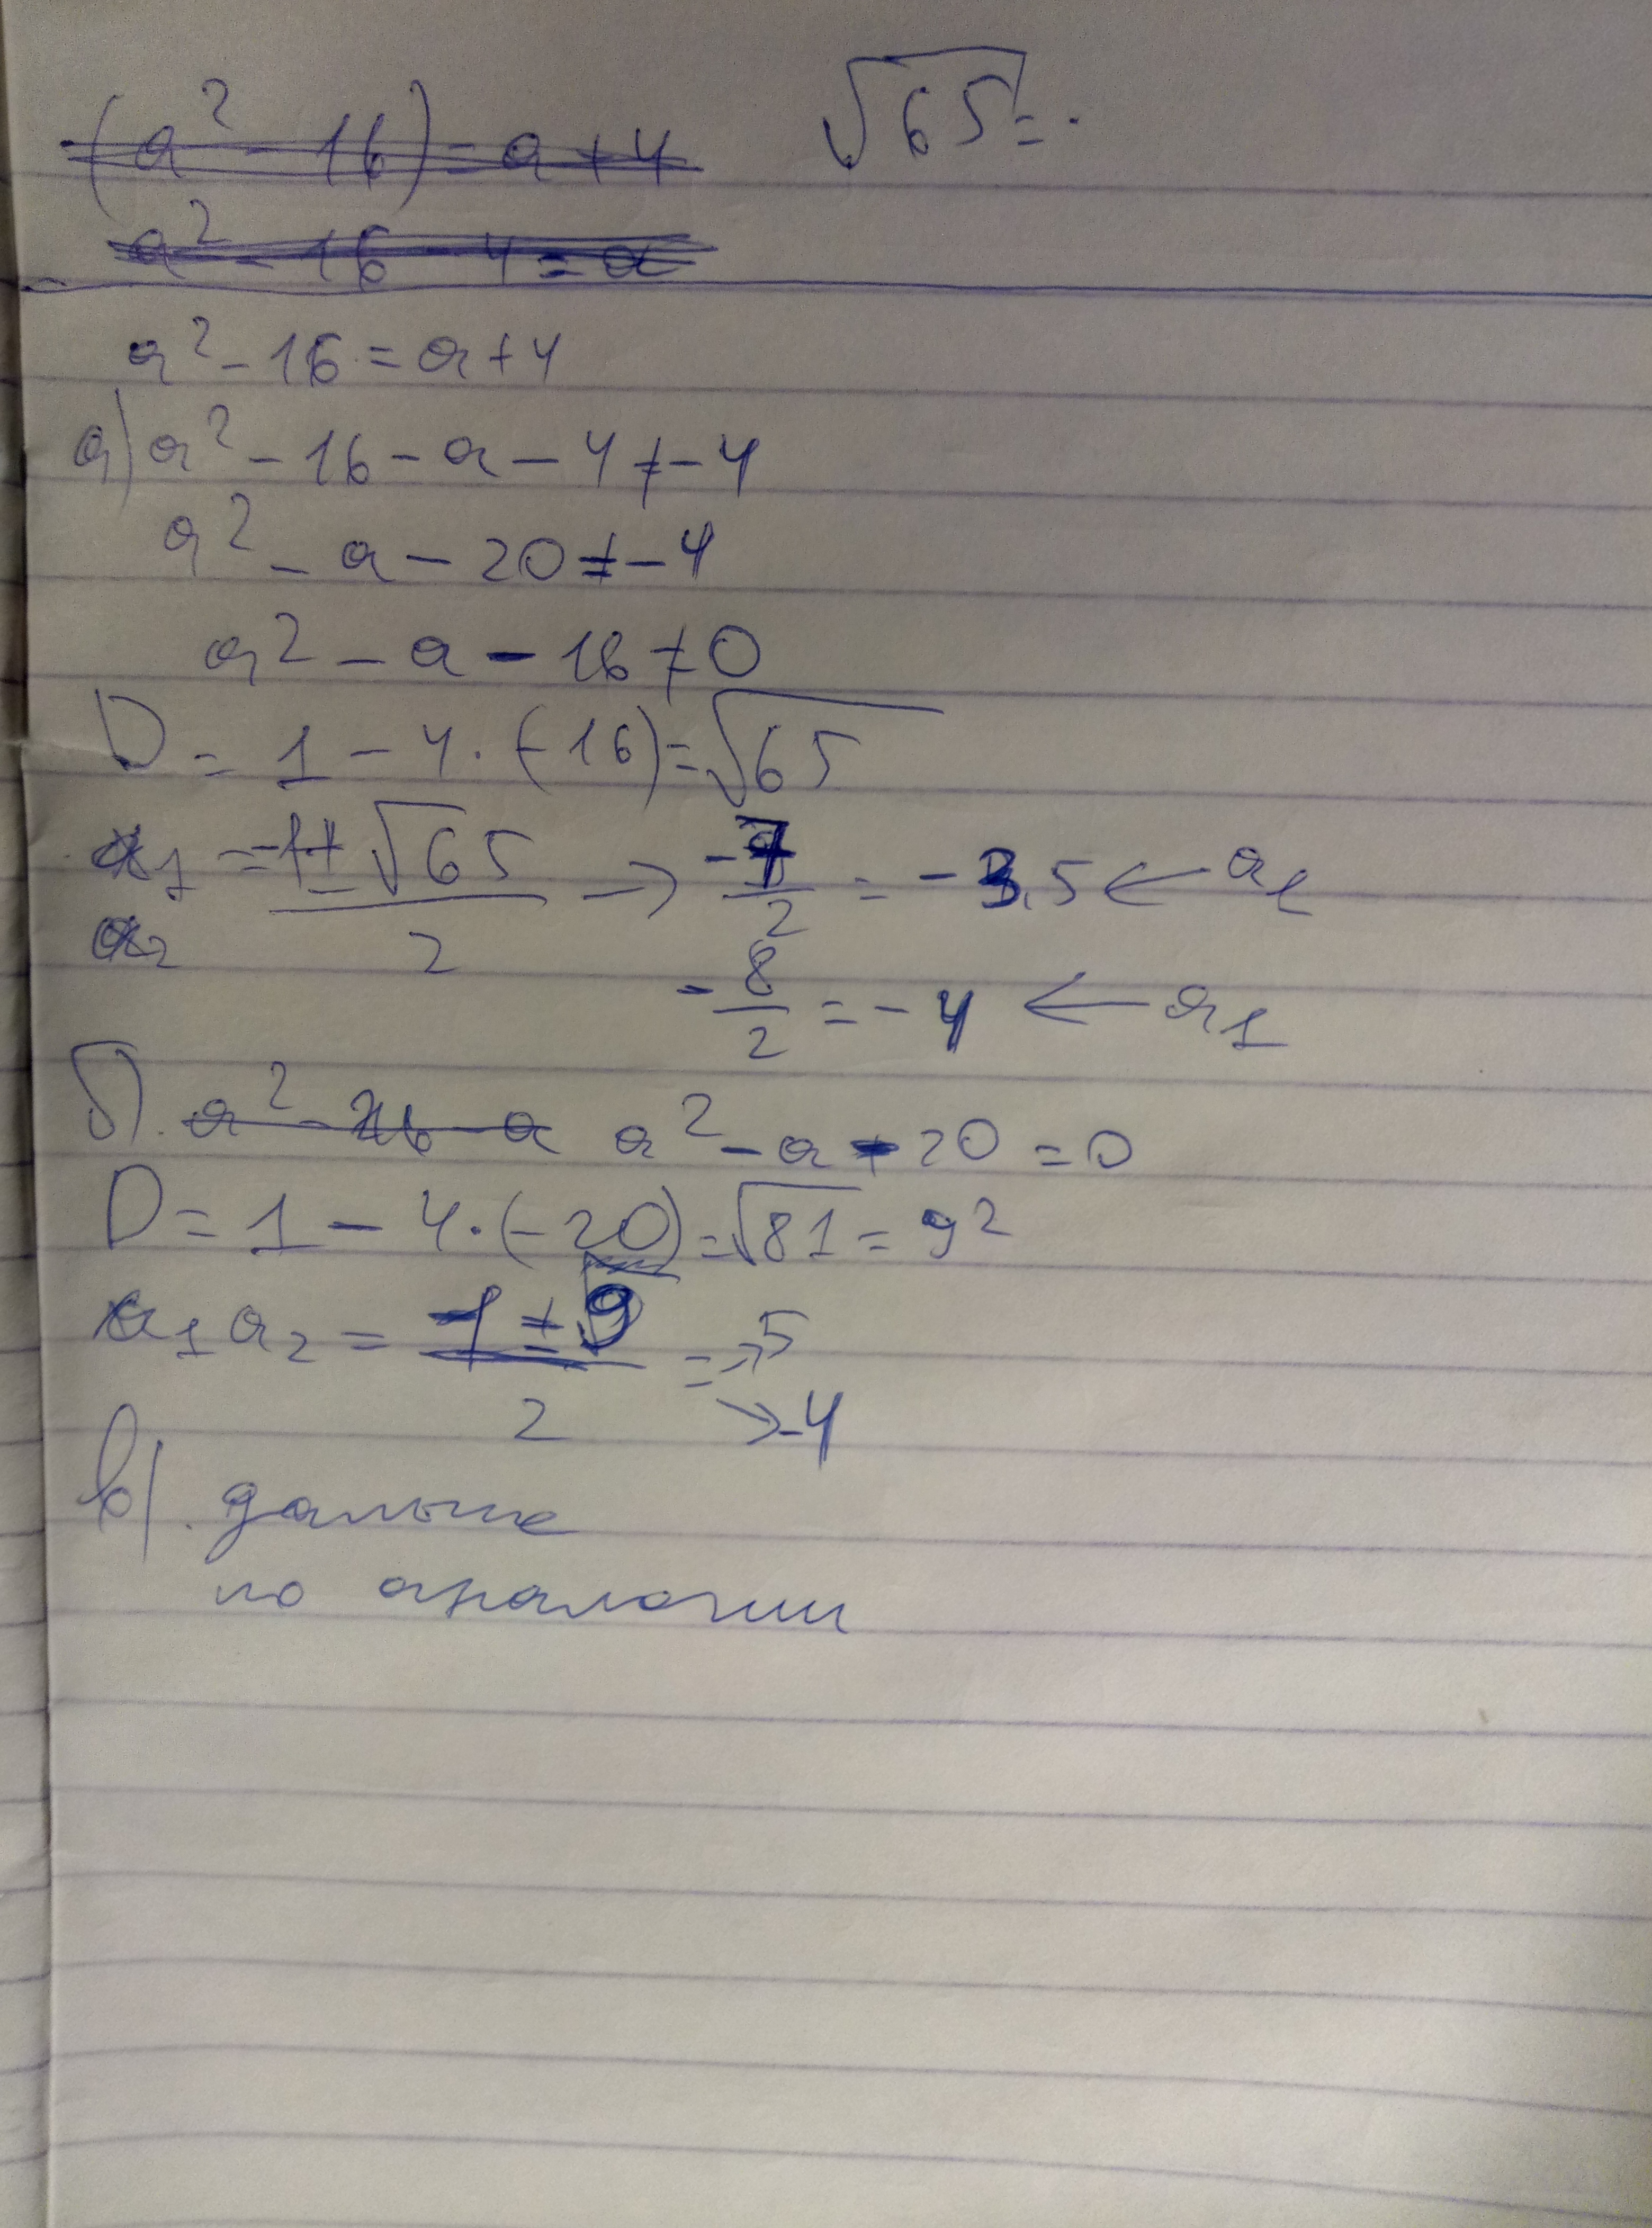 (a² - 16) = a + 4
√65 = .
a² - 16 - 4 = a
a² - 16 = a + 4
а) a² - 16 - a - 4 ≠ -4
a² - a - 20 ≠ -4
a² - a - 16 ≠ 0
D = 1 - 4 · (-16) = √65
a₁ = -1 ± √65 / 2 → -7/2 = -3,5 ← a₂
a₂
-8/2 = -4 ← a₁
б). a² - 16 - a a² - a - 20 = 0
D = 1 - 4 · (-20) = √81 = 9²
a₁ a₂ = -1 ± 9 / 2 = → 5
→ -4
в). дальше
по аналогии